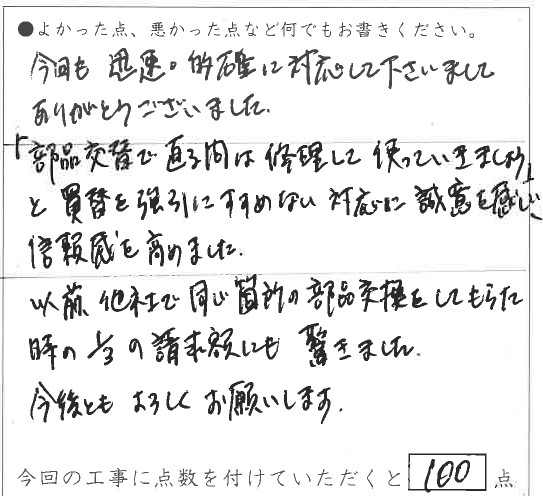 ●よかった点、悪かった点など何でもお書きください。
今回も 迅速。的確に対応して下さいまして
ありがとうございました。
「部品交替で直る間は修理して使っていきましょう」
と買替を強引にすすめない対応に誠意を感じ、
信頼感を高めました。
以前、他社で同じ箇所の部品交換をしてもらった
時の1/3の請求額にも驚きました。
今後ともよろしくお願いします。
今回の工事に点数を付けていただくと 100 点